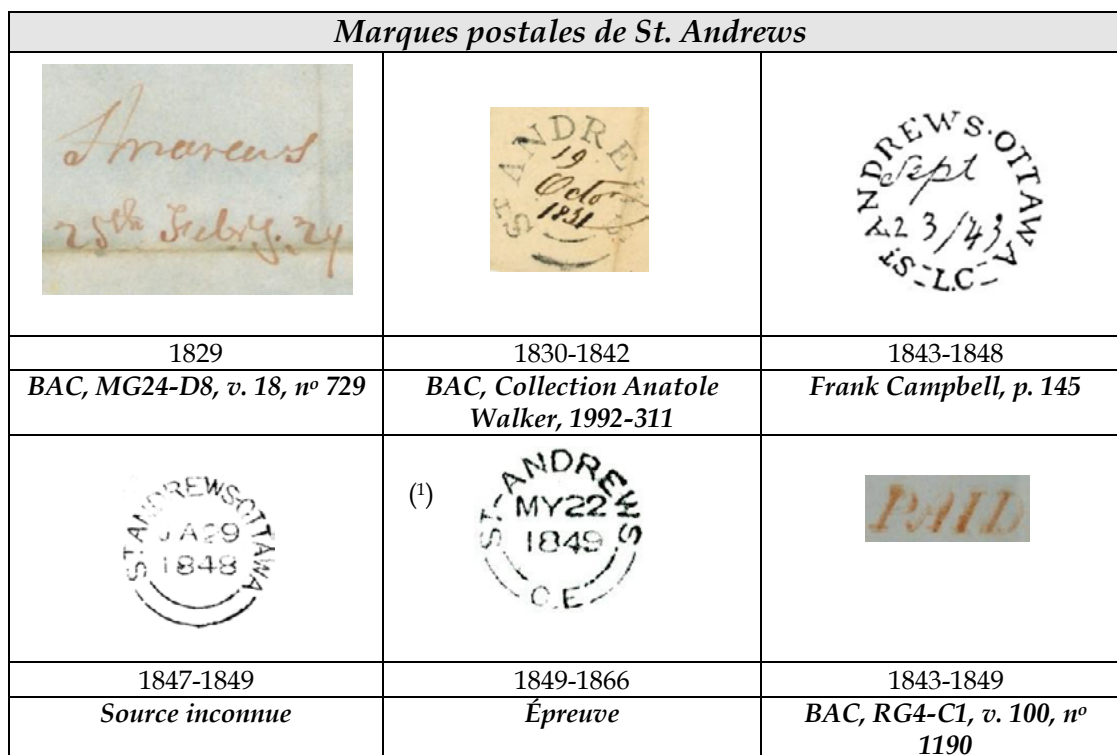 Marques postales de St. Andrews
St Andrews
25th Feby. 29
ST ANDREWS
19
Octor
1831
ST ANDREWS·OTTAWA
Sept
23/43
-L.C-
1829
1830-1842
1843-1848
BAC, MG24-D8, v. 18, nº 729
BAC, Collection Anatole
Walker, 1992-311
Frank Campbell, p. 145
ST ANDREWS-OTTAWA
JA29
1848
(¹)
ST-ANDREWS
MY22
1849
C.E
PAID
1847-1849
1849-1866
1843-1849
Source inconnue
Épreuve
BAC, RG4-C1, v. 100, nº
1190